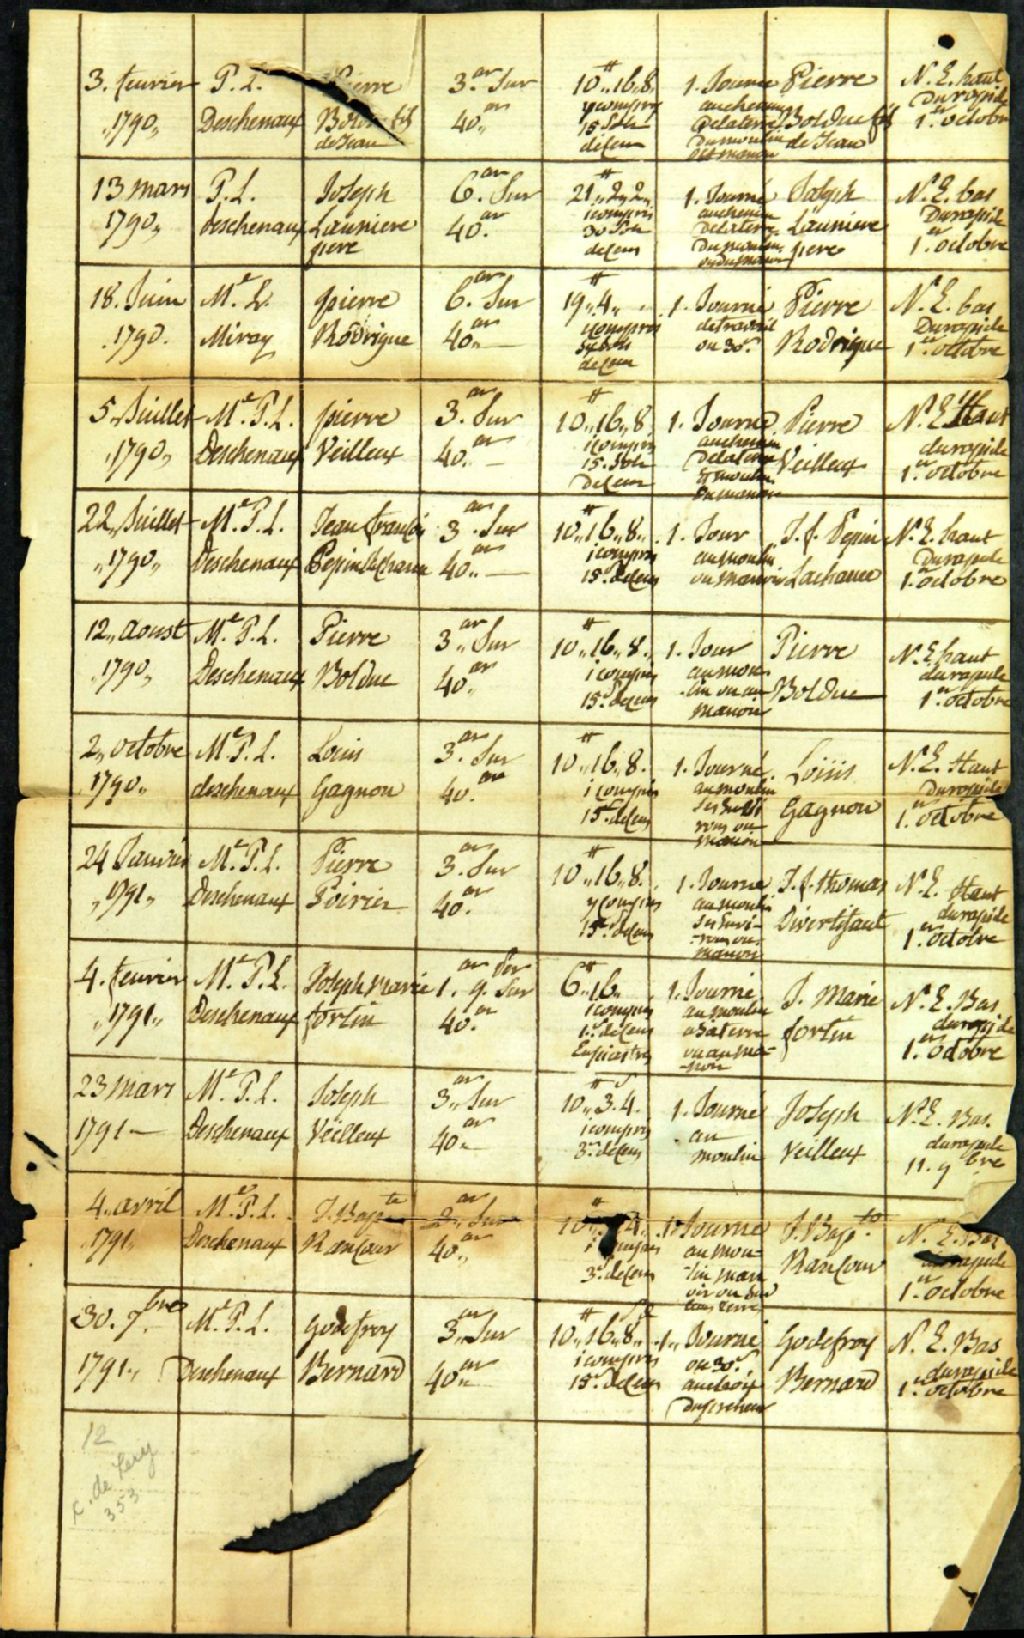 3. fevrier 1790,, P. L. Deschenaux Pierre Bolduc fils de Jean 3.ar Sur 40.ar 10tt,,16,,8 y compris 15 Sols de Cens 1. Journée Pierre Bolduc fils de Jean N. E. haut du rapide 1.er octobre
13 mars 1790,, P. L. deschenaux Joseph Launiere pere 6.ar Sur 40.ar 21tt,, y compris 30 Sols de Cens 1. Journé Joseph Launiere pere N. E. bas du rapide 1.er octobre
18. Juin 1790. Me L. Miray pierre Rodrigue 6.ar Sur 40.ar 19tt,,4,, y compris de Cens 1. Journé de travail ou 30s. Pierre Rodrigue N. E. bas Du rapide 1.er octobre
5,, Juillet 1790,, Me P. L. Deschenaux pierre Veilleux 3.ar Sur 40.ar 10tt,,16,,8. y compris 15. Sols De Cens 1. Journé Pierre Veilleux N. E. Haut du rapide 1.er octobre
22,, Juillet 1790,, Me. P. L. Deschenaux Jean francois Pepin Lachance 3.ar Sur 40.ar 10tt,,16,,8,, y compris 15s. de Cens 1. Jour au moulin ou manoir J. f. Pepin Lachance N. E. haut Du rapide 1. octobre
12,, aoust 1790,, Me. P. L. Deschenaux Pierre Bolduc 3.ar Sur 40.ar 10tt,,16,,8. y compris 15s. de Cens 1. Jour au mou- lin ou au manoir Pierre Bolduc N. E. haut du rapide 1.er octobre
2,, octobre 1790,, Me P. L. deschenaux Louis Gagnon 3.ar Sur 40.ar 10tt,,16,,8. y compris 15s. de Cens 1. Journé au moulin ou manoir Louis Gagnon N. E. Haut Du rapide 1.er octobre
24 Janvier 1791,, Me. P. L. Deschenaux Pierre Poirier 3.ar Sur 40.ar 10tt,,16,,8. y compris 15s. de Cens 1. Journé au moulin manoir J. f. thomas N. E. Haut du rapide 1.er octobre
4. fevrier 1791,, Me P. L. Deschenaux Joseph Marie fortin 1.ar 9. Sur 40.ar 6tt,,16. y compris de Cens 1. Journé au moulin ou au ma- noir J. Marie fortin N. E. Bas du rapide 1.er octobre
23 Mars 1791 — Me. P. L. Deschenaux Joseph Veilleux 3.ar Sur 40.ar 10tt,,3s.4. y compris 3s. de Cens 1. Journé au moulin Joseph Veilleux N. E. Bas. du rapide 11. 9bre
4,, avril 1791,, Me. P. L. Deschenaux J. Bapte Rancour 3.ar Sur 40.ar y compris 3s. de Cens 1. Journé au mou- lin J. Bapte. Rancour N. E. Bas du rapide 1.er octobre
30. 7bre 1791,, Me. P. L. Deschenaux Godefroy Bernard 3.ar Sur 40.ar 10tt,,16,,8,, y compris 15s. de Cens 1,, Journé ou 30s. au choix Du preneur Godefroy Bernard N. E. Bas du rapide 1.er octobre
12
C. de Lery
353